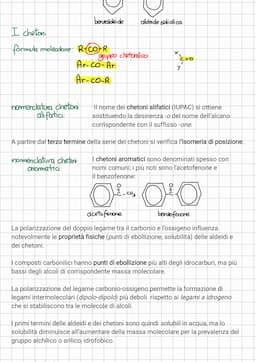 benzaldeide aldeide salicilica
I chetoni
formula molecolare: R-CO-R
gruppo chetonico
Ar-CO-Ar
Ar-CO-R
x
C=O
y
nomenclatura chetoni Il nome dei chetoni alifatici (IUPAC) si ottiene
alifatici sostituendo la desinenza -o del nome dell'alcano
corrispondente con il suffisso -one
A partire dal terzo termine della serie dei chetoni si verifica l'isomeria di posizione.
nomenclatura chetoni I chetoni aromatici sono denominati spesso con
aromatici nomi comuni; i più noti sono l'acetofenone e
il benzofenone:
O O
C-CH₃ C
acetofenone benzofenone
La polarizzazione del doppio legame tra il carbonio e l'ossigeno influenza
notevolmente le proprietà fisiche (punti di ebollizione, solubilità) delle aldeidi e
dei chetoni.
I composti carbonilici hanno punti di ebollizione più alti degli idrocarburi, ma più
bassi degli alcoli di corrispondente massa molecolare.
La polarizzazione del legame carbonio-ossigeno permette la formazione di
legami intermolecolari (dipolo-dipolo) più deboli rispetto ai legami a idrogeno
che si stabiliscono tra le molecole di alcoli.
I primi termini delle aldeidi e dei chetoni sono quindi solubili in acqua, ma lo
solubilità diminuisce all'aumentare della massa molecolare per la prevalenza del
gruppo alchilico o arilico, idrofobico.